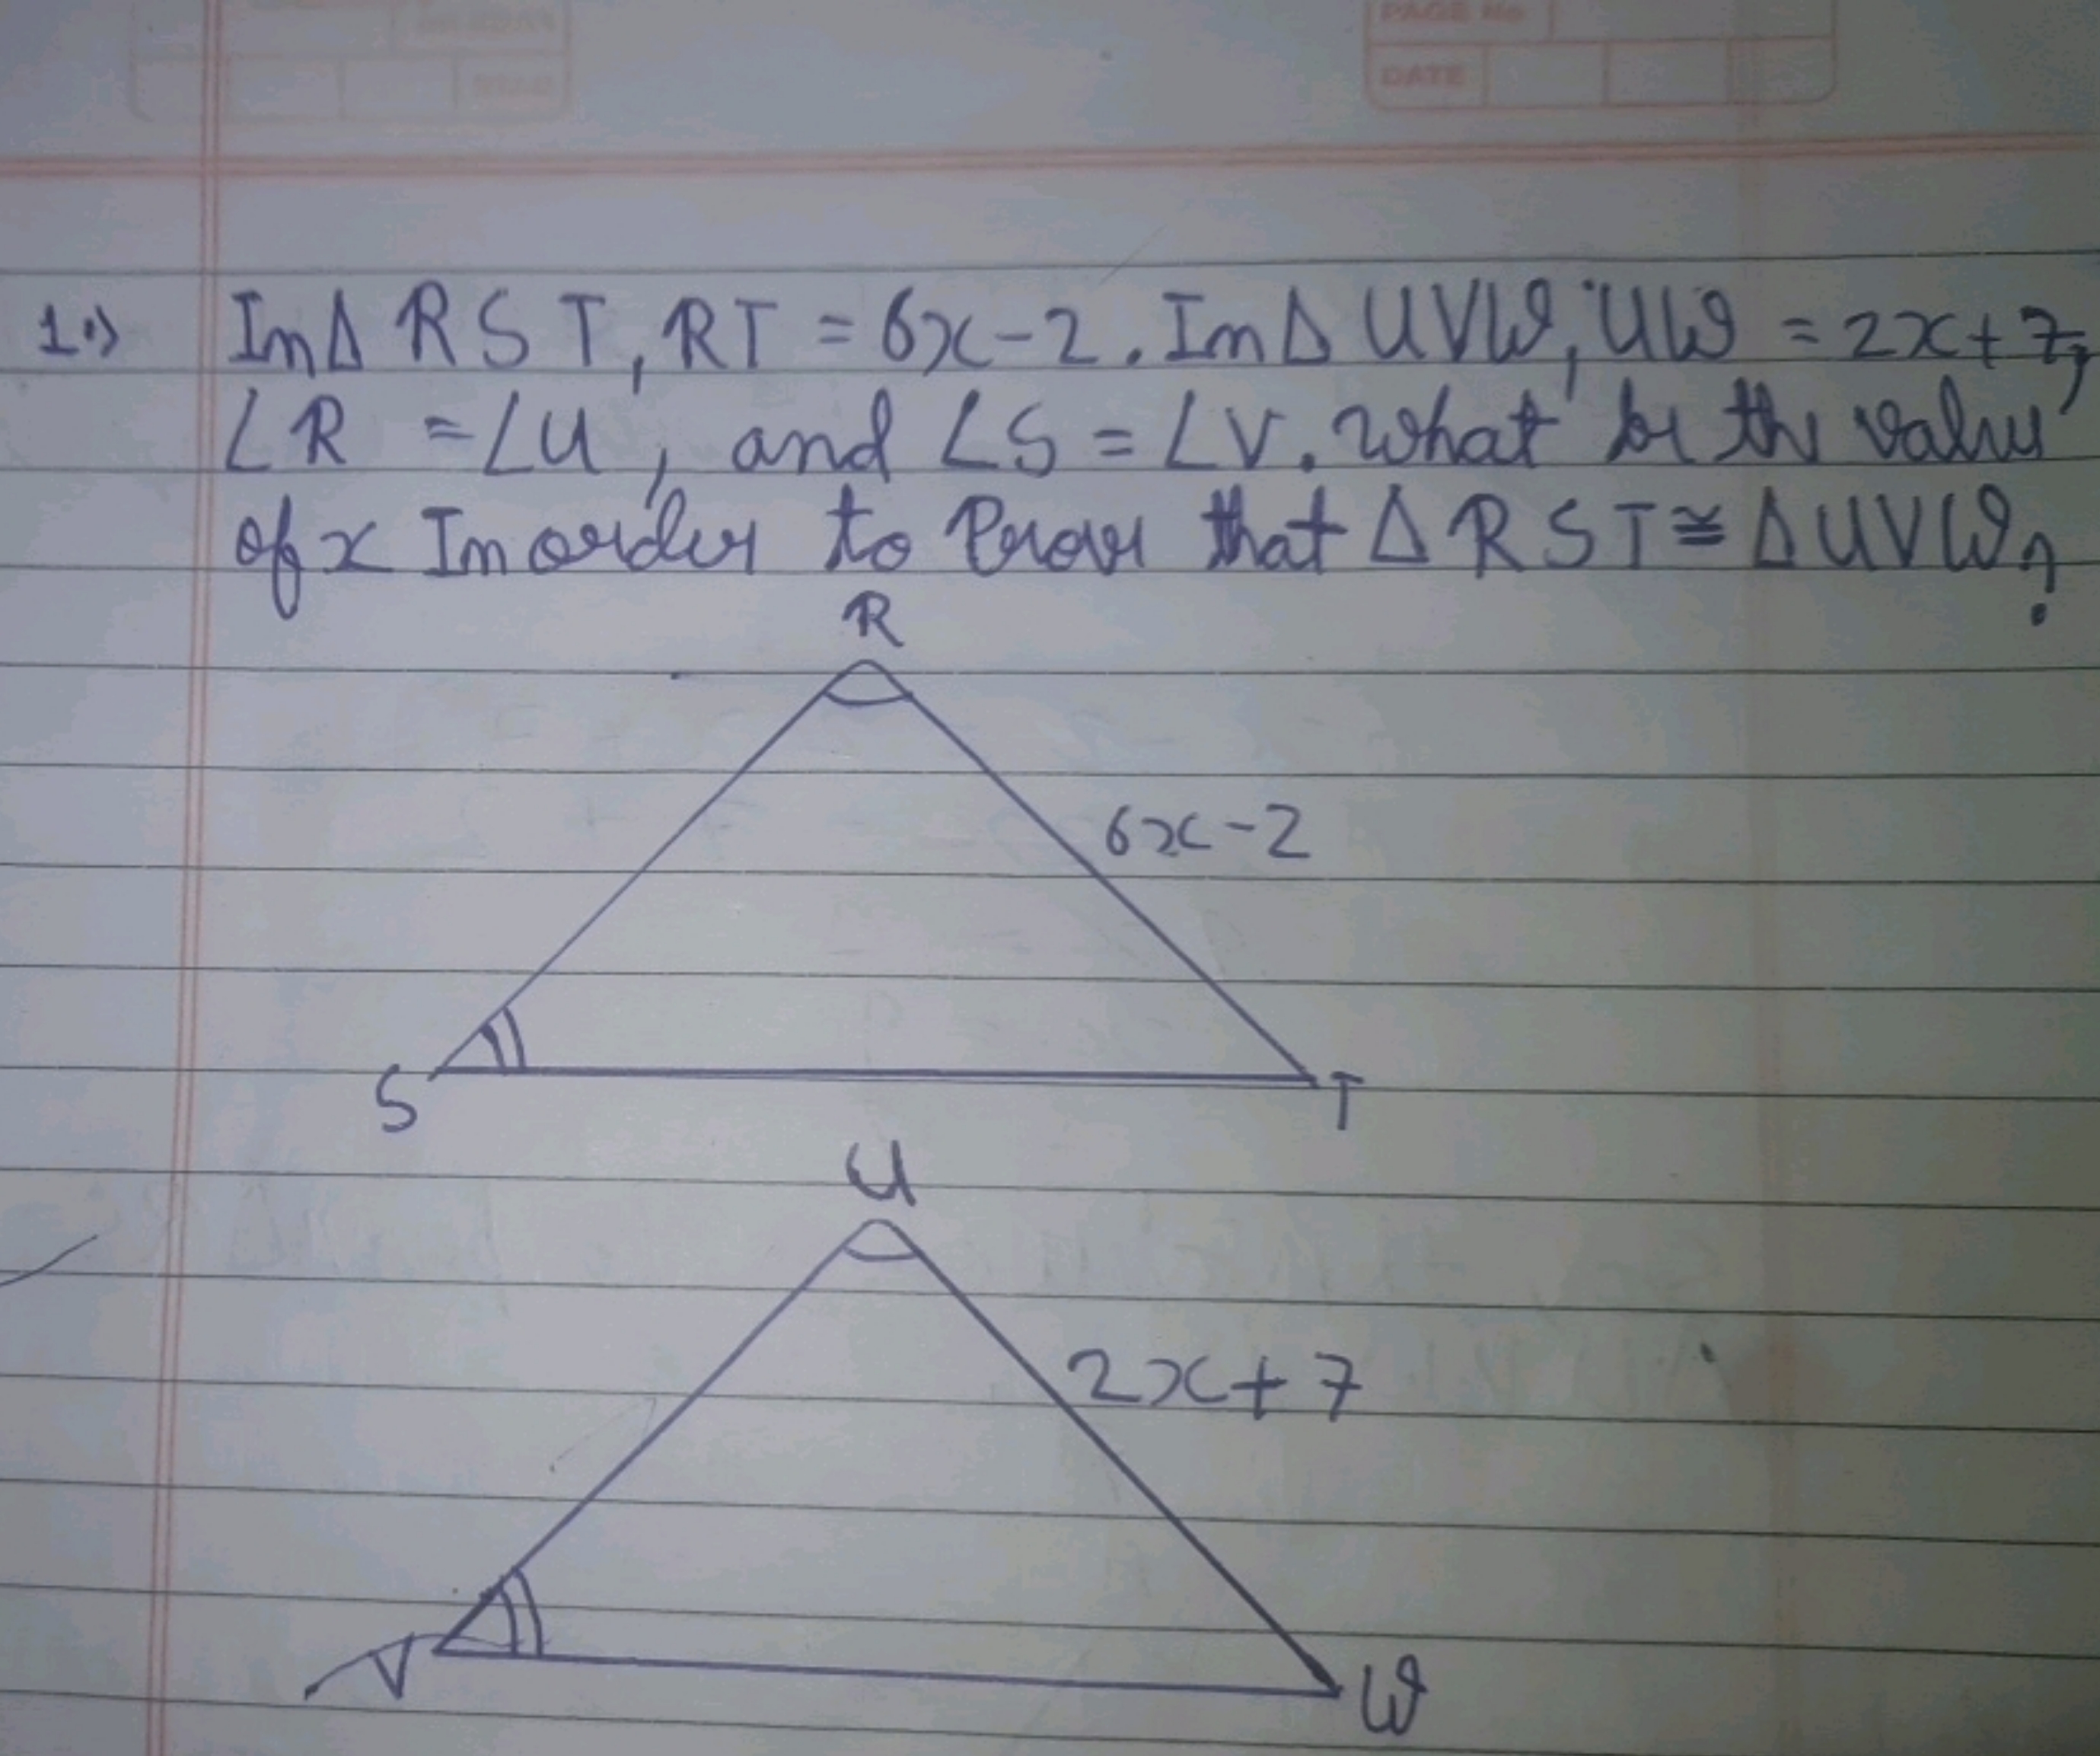 PAGE No
DATE
1.) In Δ RST, RT = 6x-2. In Δ UVW, UW = 2x+7,
∠R = ∠U, and ∠S = ∠V. What be the value
of x In order to Prove that Δ RST ≅ Δ UVW?
R
6x-2
S T
U
2x+7
V W